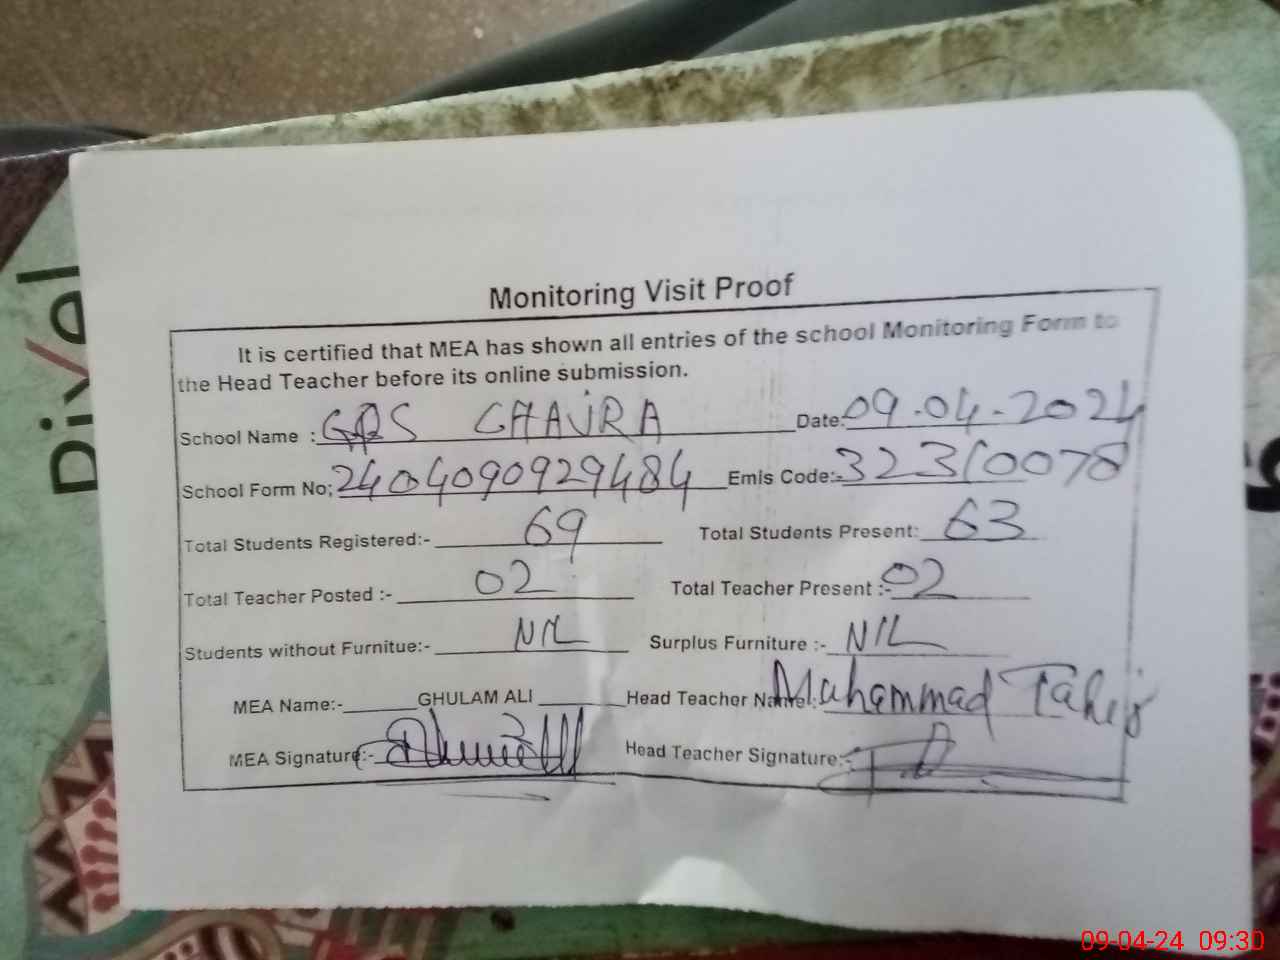 Monitoring Visit Proof
It is certified that MEA has shown all entries of the school Monitoring Form to
the Head Teacher before its online submission.
School Name : GPS GHAJRA Date: 09.04.2024
School Form No; 2404090929484 Emis Code:- 32310078
Total Students Registered:- 69 Total Students Present: 63
Total Teacher Posted :- 02 Total Teacher Present :- 02
Students without Furnitue:- NIL Surplus Furniture :- NIL
MEA Name:- GHULAM ALI Head Teacher Name: Muhammad Tahir
MEA Signature:- Head Teacher Signature:-
Pixel
09-04-24 09:30